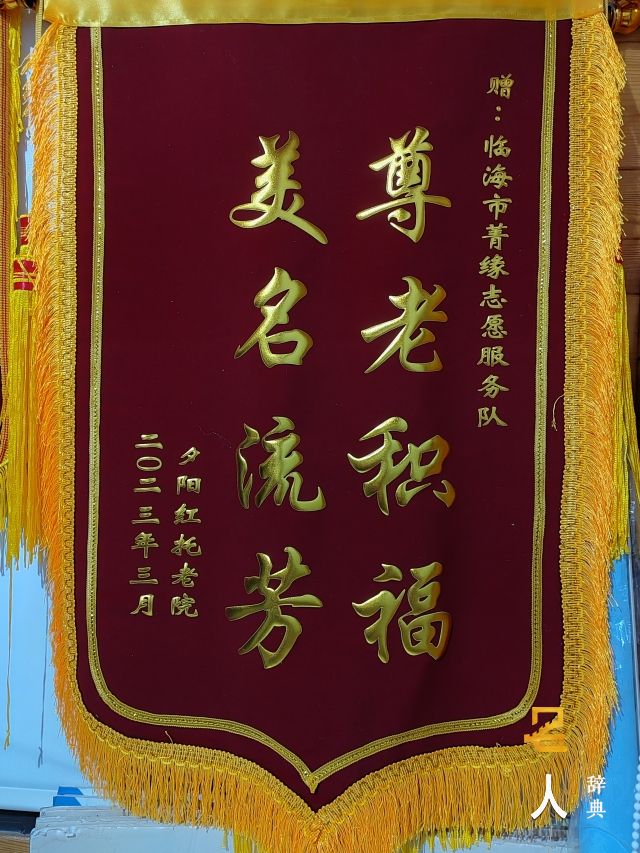 赠：临海市菁缘志愿服务队
尊老积福
美名流芳
夕阳红托老院
二〇二三年三月
人
辞典